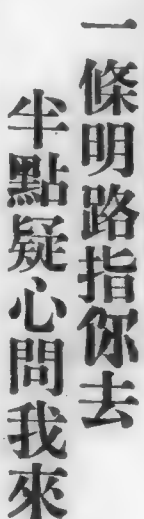 一條明路指你去
半點疑心問我來